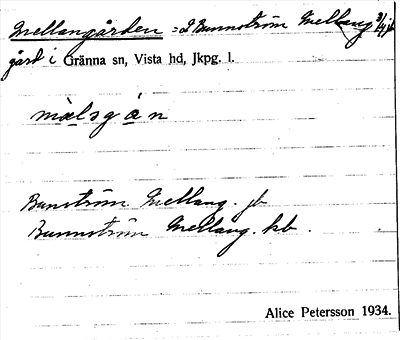 Mellangården = I Bunnström Mellang 3/4 jb
gård i Gränna sn, Vista hd, Jkpg. l.
mælsgán
Bunström Mellang. jb
Bunnström Mellang. kb.
Alice Petersson 1934.